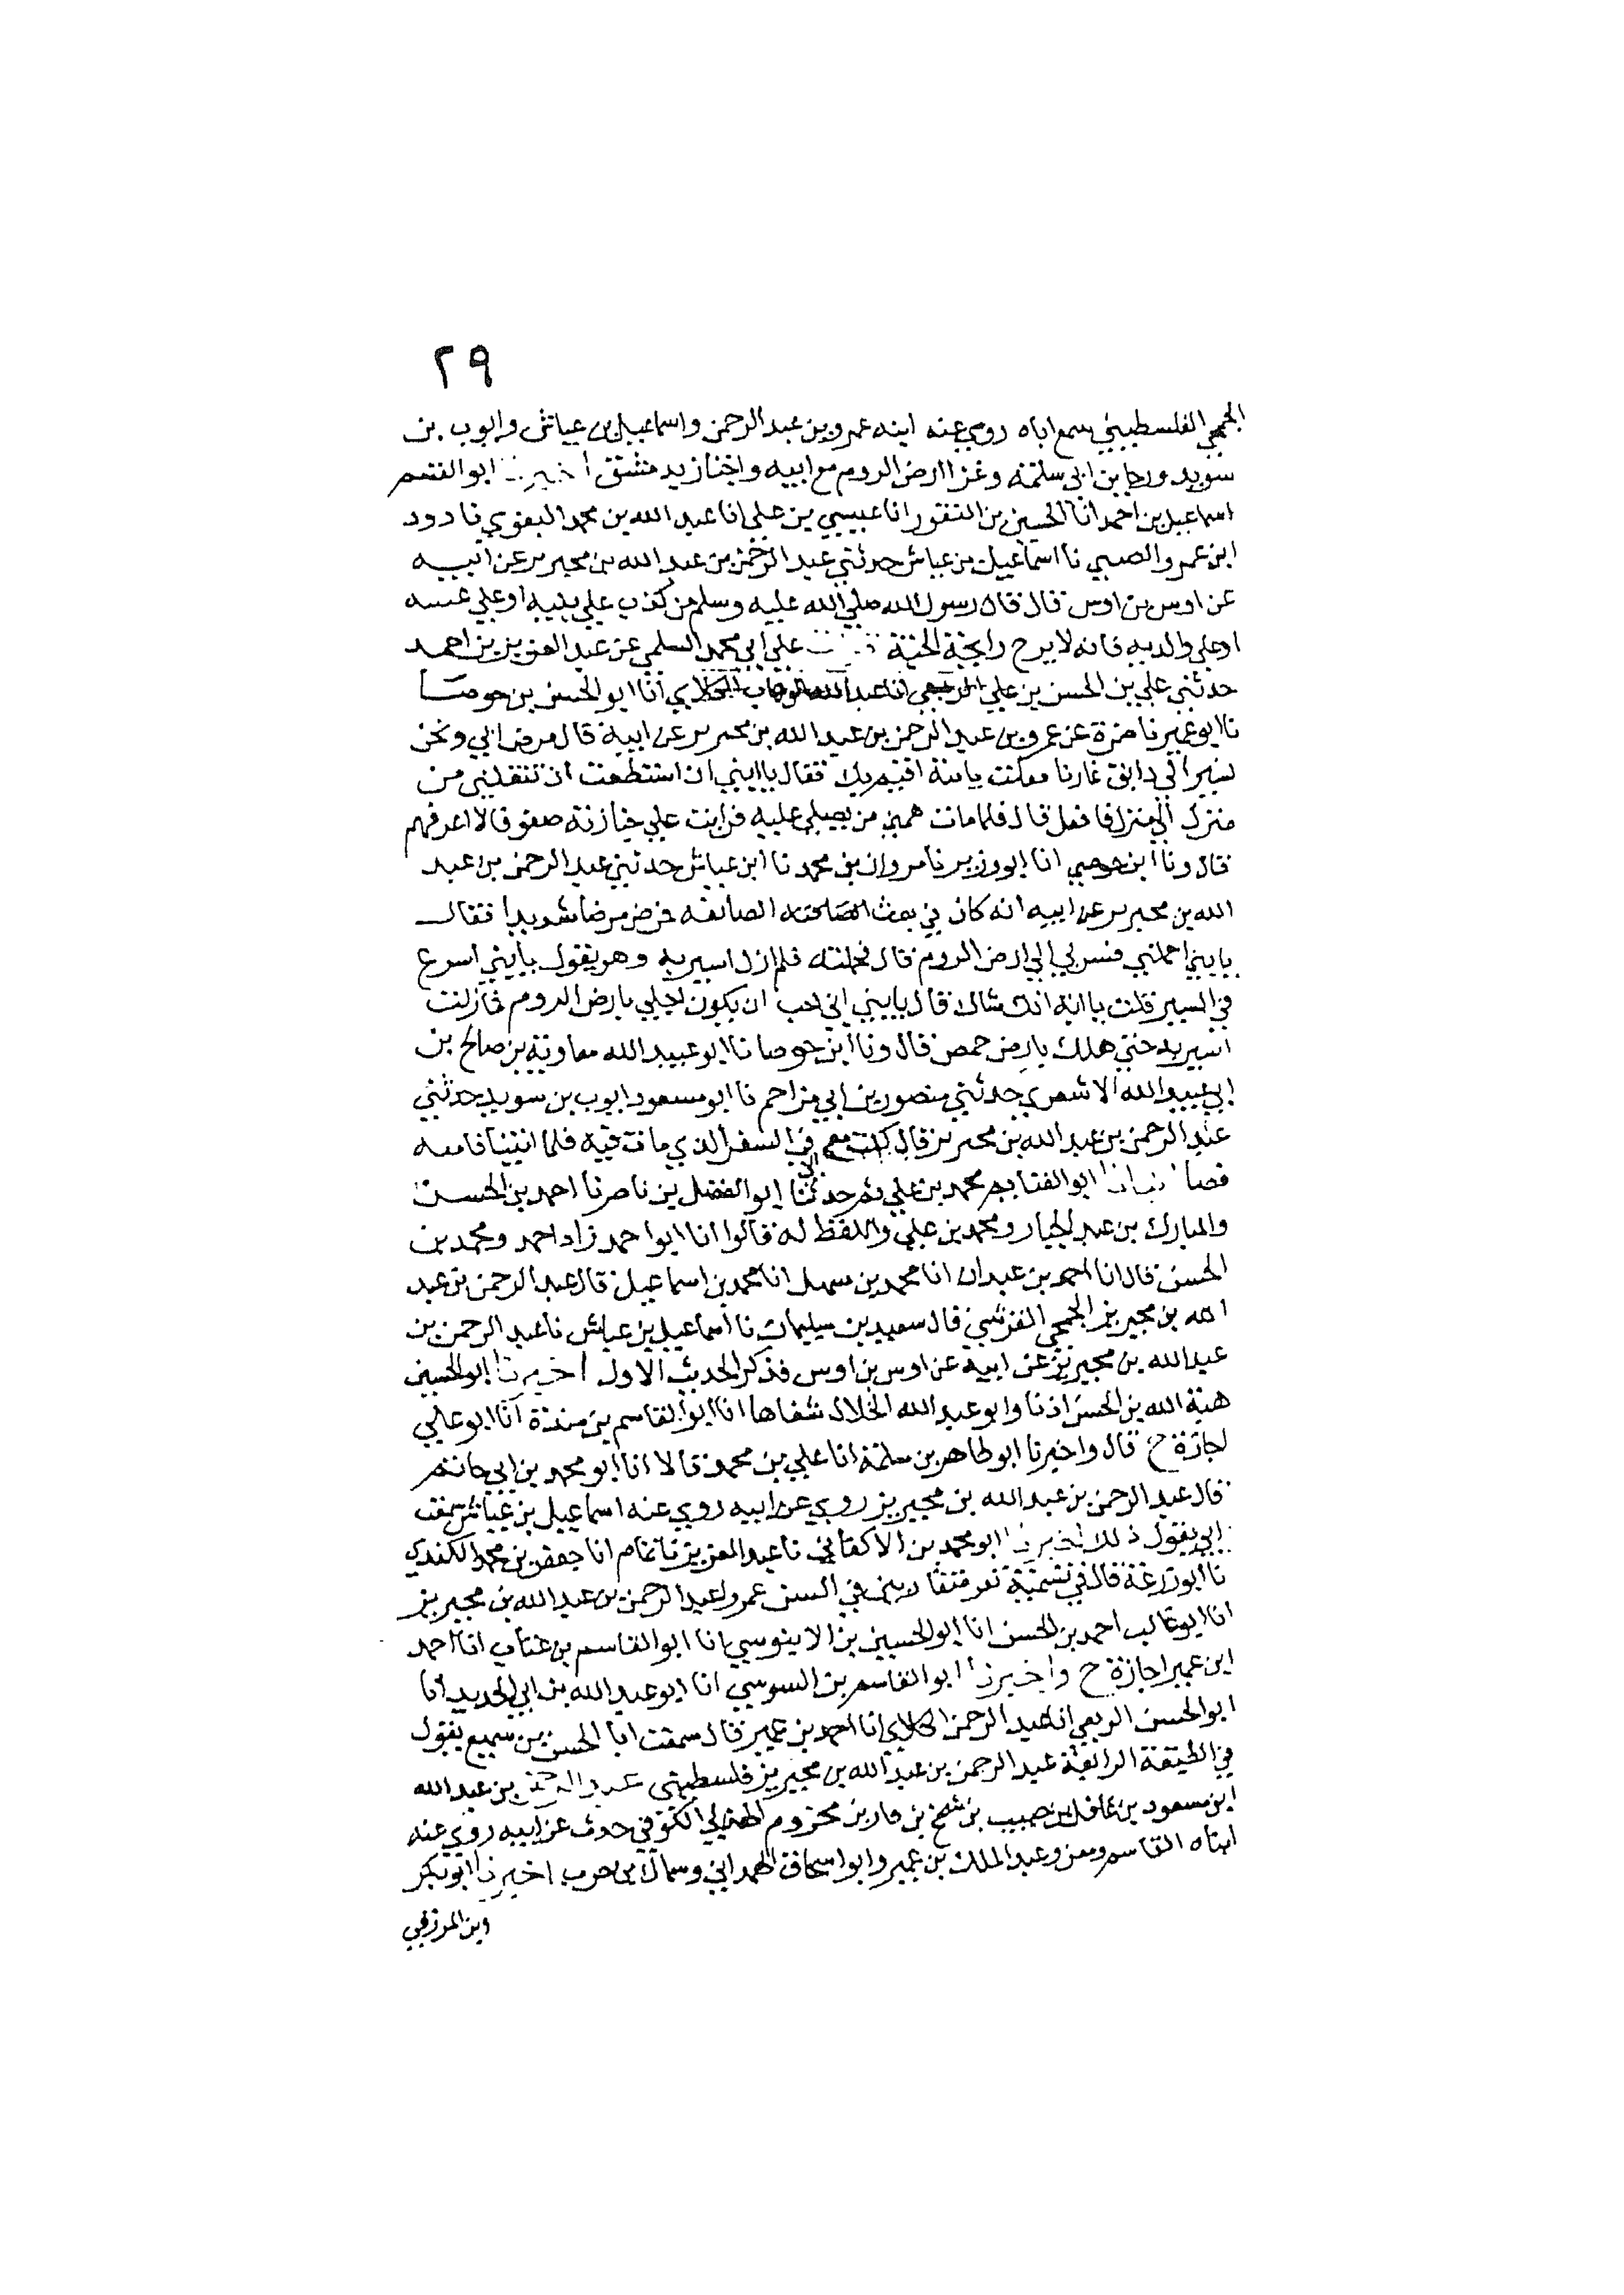 ٢٩
الجمحي الفلسطيني سمع اباه روي عنه ابنه عمرو بن عبد الرحمن واسماعيل بن عياش وايوب بن
سويد ورجا بن ابي سلمة وغزا ارض الروم مع ابيه واجتاز بدمشق اخبرنا ابو القسم
اسماعيل بن احمد انا الحسين بن النقور انا عيسي بن علي انا عبد الله بن محمد البغوي نا داود
ابن عمرو الضبي نا اسماعيل بن عياش حدثني عبد الرحمن بن عبد الله بن محيريز عن ابيه
عن اوس بن اوس قال قال رسول الله صلي الله عليه وسلم من كذب علي نبيه او علي عينيه
او علي والديه فانه لا يرح رايحة الجنة علي ابي محمد السلمي عن عبد العزيز بن احمد
حدثني علي بن الحسن بن علي الربعي انا عبد الوهاب الكلابي انا ابو الحسن بن جوصا
نا ابو عمير نا ضمرة عن عمرو بن عبد الرحمن بن عبد الله بن محيريز عن ابيه قال مرض ابي ونحن
نسير في دابق فقال يا بني ان استطعت ان تنقلني من
منزل الي منزل فافعل قال فلما مات همني من يصلي عليه فرايت علي جنازته صفوفا لا اعرفهم
قال ونا ابن جوصي انا ابو وزير نا مروان بن محمد نا ابن عياش حدثني عبد الرحمن بن عبد
الله بن محيريز عن ابيه انه كان في بعث الصائفه فمرض مرضا شديدا فقال
يا بني احملني فسر بي الي ارض الروم قال فحملته فلم ازل اسير به وهو يقول يا بني اسرع
في السير فقلت يا ابة انك شاك قال يا بني اني احب ان يكون اجلي بارض الروم فما زلت
اسير به حتي هلك بارض حمص قال ونا ابن جوصا نا ابو عبيد الله معاوية بن صالح بن
ابي عبيد الله الاشعري حدثني منصور بن ابي مزاحم نا ابو مسعود ايوب بن سويد حدثني
عبد الرحمن بن عبد الله بن محيريز قال كنت مع ابي في السفر الذي مات فيه فلما اتينا قامعه
فصا انبانا ابو الغنايم محمد بن علي ثم حدثنا ابو الفضل بن ناصر نا احمد بن الحسن
والمبارك بن عبد الجبار ومحمد بن علي واللفظ له قالوا انا ابو احمد زاد احمد ومحمد بن
الحسن قال انا احمد بن عبدان انا محمد بن سهل انا محمد بن اسماعيل قال عبد الرحمن بن عبد
الله بن محيريز الجمحي القرشي قال سعيد بن سليمان نا اسماعيل بن عياش نا عبد الرحمن بن
عبد الله بن محيريز عن ابيه عن اوس بن اوس فذكر الحديث الاول اخبرنا ابو الحسين
هبة الله بن الحسن اذنا وابو عبد الله الخلال شفاها انا ابو القاسم بن مندة انا ابو علي
اجازة ح قال واخبرنا ابو طاهر بن سلمة انا علي بن محمد قالا انا ابو محمد بن ابي حاتم
قال عبد الرحمن بن عبد الله بن محيريز روي عن ابيه روي عنه اسماعيل بن عياش سمعت
ابي يقول ذلك اخبرنا ابو محمد بن الاكفاني نا عبد العزيز نا تمام انا جعفر بن محمد الكندي
نا ابو زرعة قال في تسمية نفر متقاربين في السن عمرو وعبد الرحمن بن عبد الله بن محيريز
انا ابو غالب احمد بن الحسن انا ابو الحسين بن الابنوسي انا ابو القاسم بن عتاب انا احمد
ابن عمير اجازة ح واخبرنا ابو القاسم بن السوسي انا ابو عبد الله بن ابي الحديد انا
ابو الحسن الربعي انا عبد الرحمن الكلابي انا احمد بن عمير قال سمعت ابا الحسن بن سميع يقول
في الطبقة الرابعة عبد الرحمن بن عبد الله بن محيريز فلسطيني عبد الرحمن بن عبد الله
ابن مسعود بن غافل بن حبيب بن شمخ بن فار بن مخزوم الهذلي الكوفي حدث عن ابيه روي عنه
ابناه القاسم ومعن وعبد الملك بن عمير وابو اسحاق الهمداني وسماك بن حرب اخبرنا ابو بكر
وبن المزرفي